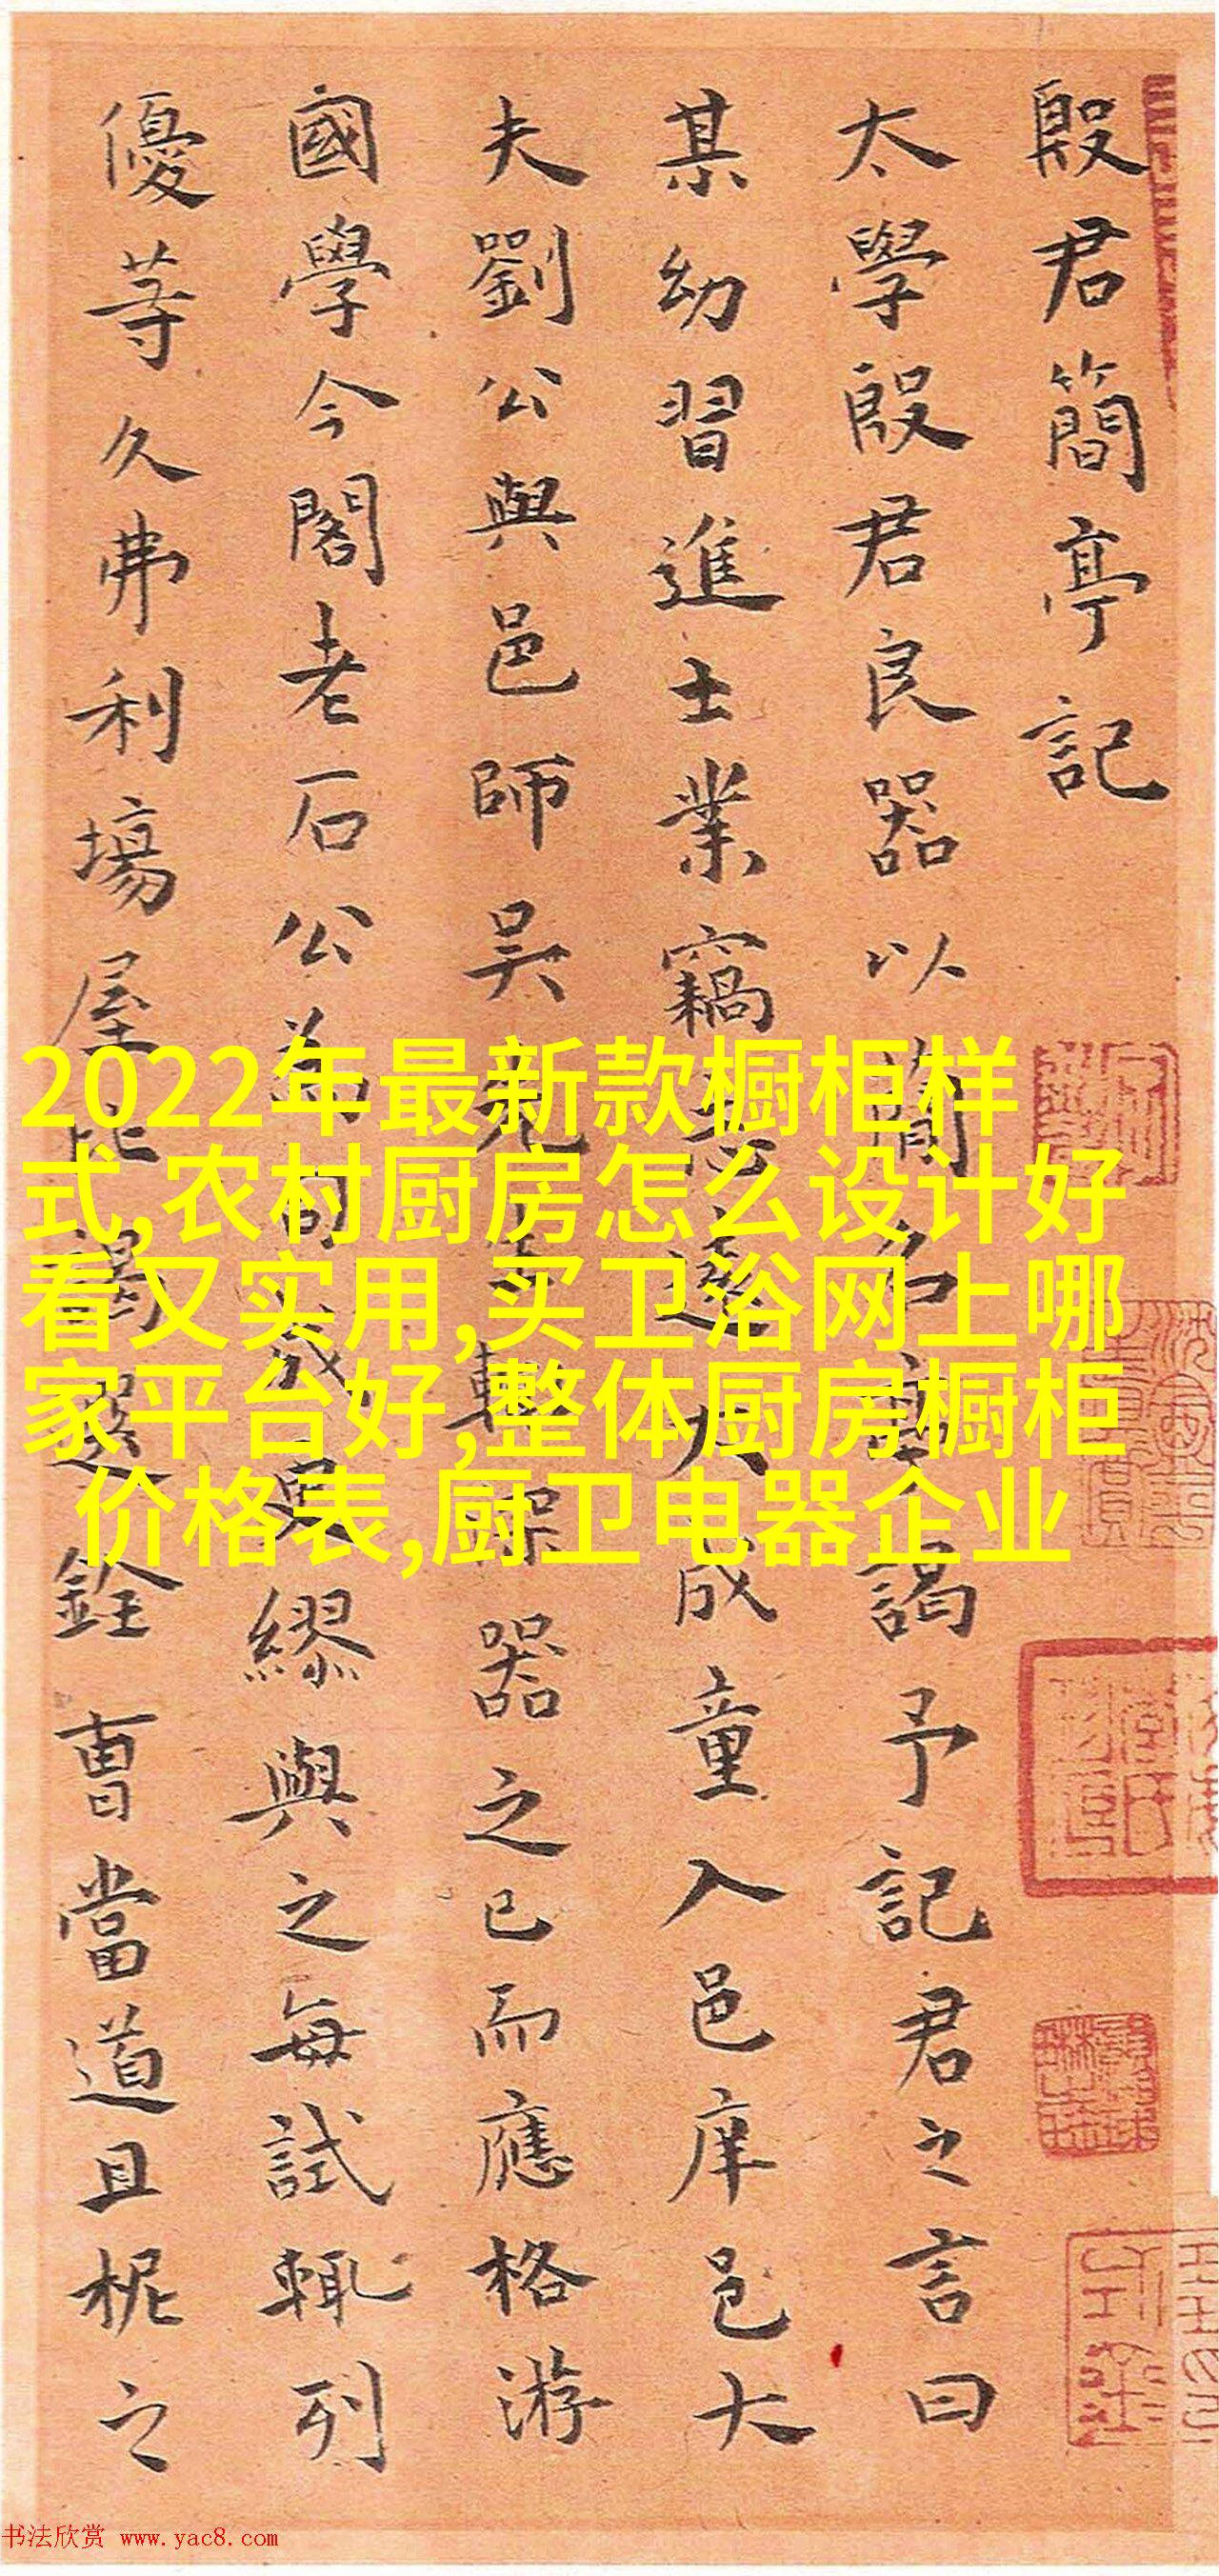 殷君簡亭記
太學殷君良器以簡名亭謁予記君之言曰
某幼習進士業竊
達大成童入邑庠邑大
夫劉公與邑師吳先生
器之已而應格游
國學今閣老石公為
繆與之每試輒列
優等久弗利場屋比謁選銓曹當道且柅之
2022年最新款橱柜样
式,农村厨房怎么设计好
看又实用,买卫浴网上哪
家平台好,整体厨房橱柜
价格表,厨卫电器企业
书法欣赏 www.yac8.com